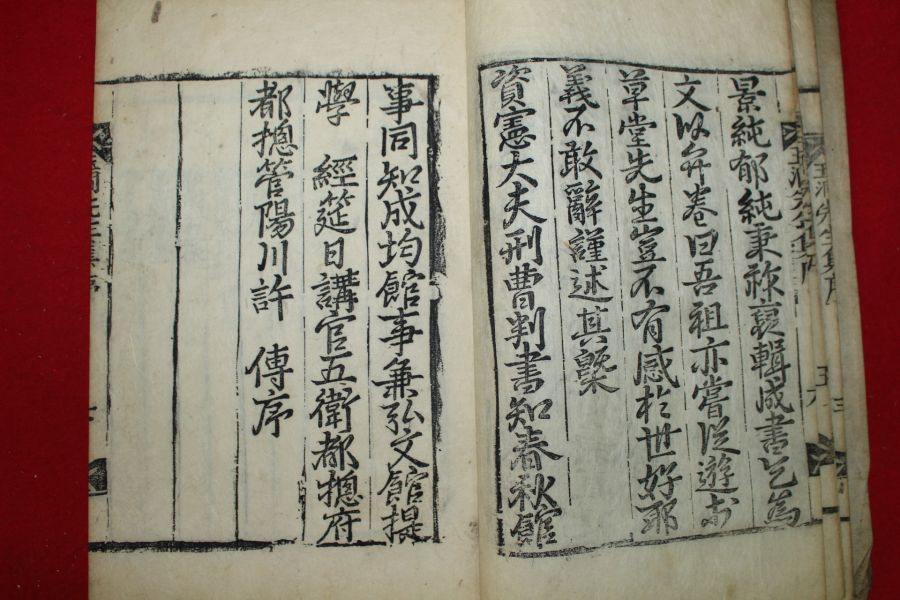 景純郁純秉䄠裒輯成書乞為
文以弁卷曰吾祖亦嘗從遊於
草堂先生豈不有感於世好耶
義不敢辭謹述其槩
資憲大夫刑曹判書知春秋館
事同知成均館事兼弘文館提
學　經筵日講官五衛都摠府
都摠管陽川許　傳序